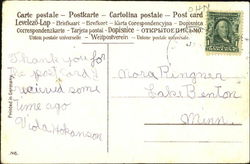 Carte postale - Postkarte - Cartolina postale - Post card
Levelezö-Lap - Briefkaart - Brefkort - Karta Korespondencyjna - Dopisnica
Correspondenzkarte - Tarjeta postal - Dopisnice - ОТКРЫТОЕ ПИСЬМО
Union postale universelle - Weltpostverein - Union postale universelle
Thank you for
the post card I
received some
time ago
Viola Hokanson
Nora Pingner
Lake Benton
Minn.
Printed in Germany